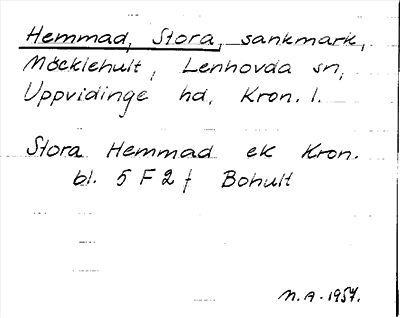 Hemmad, Stora, sankmark,
Möcklehult, Lenhovda sn,
Uppvidinge hd, Kron. l.
Stora Hemmad ek Kron.
bl. 5 F 2 f Bohult
N.A. 1954.